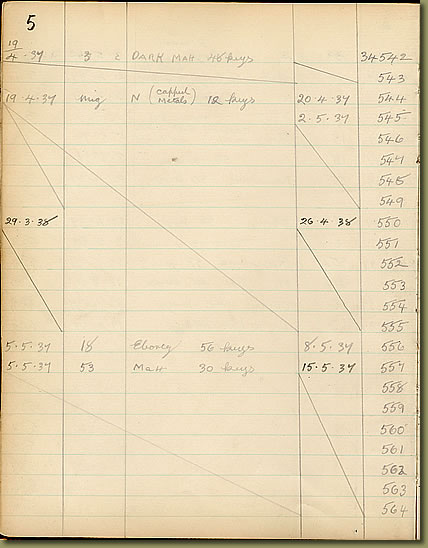 5
19
4 · 37 3 DARK MAH 48 keys 34542
543
19 · 4 · 37 N (capped Metals) 12 keys 20 · 4 · 37 544
2 · 5 · 37 545
546
547
548
549
29 · 3 · 38 26 · 4 · 38 550
551
552
553
554
555
5 · 5 · 37 18 Eboney 56 keys 8 · 5 · 37 556
5 · 5 · 37 53 Mah 30 keys 15 · 5 · 37 557
558
559
560
561
562
563
564